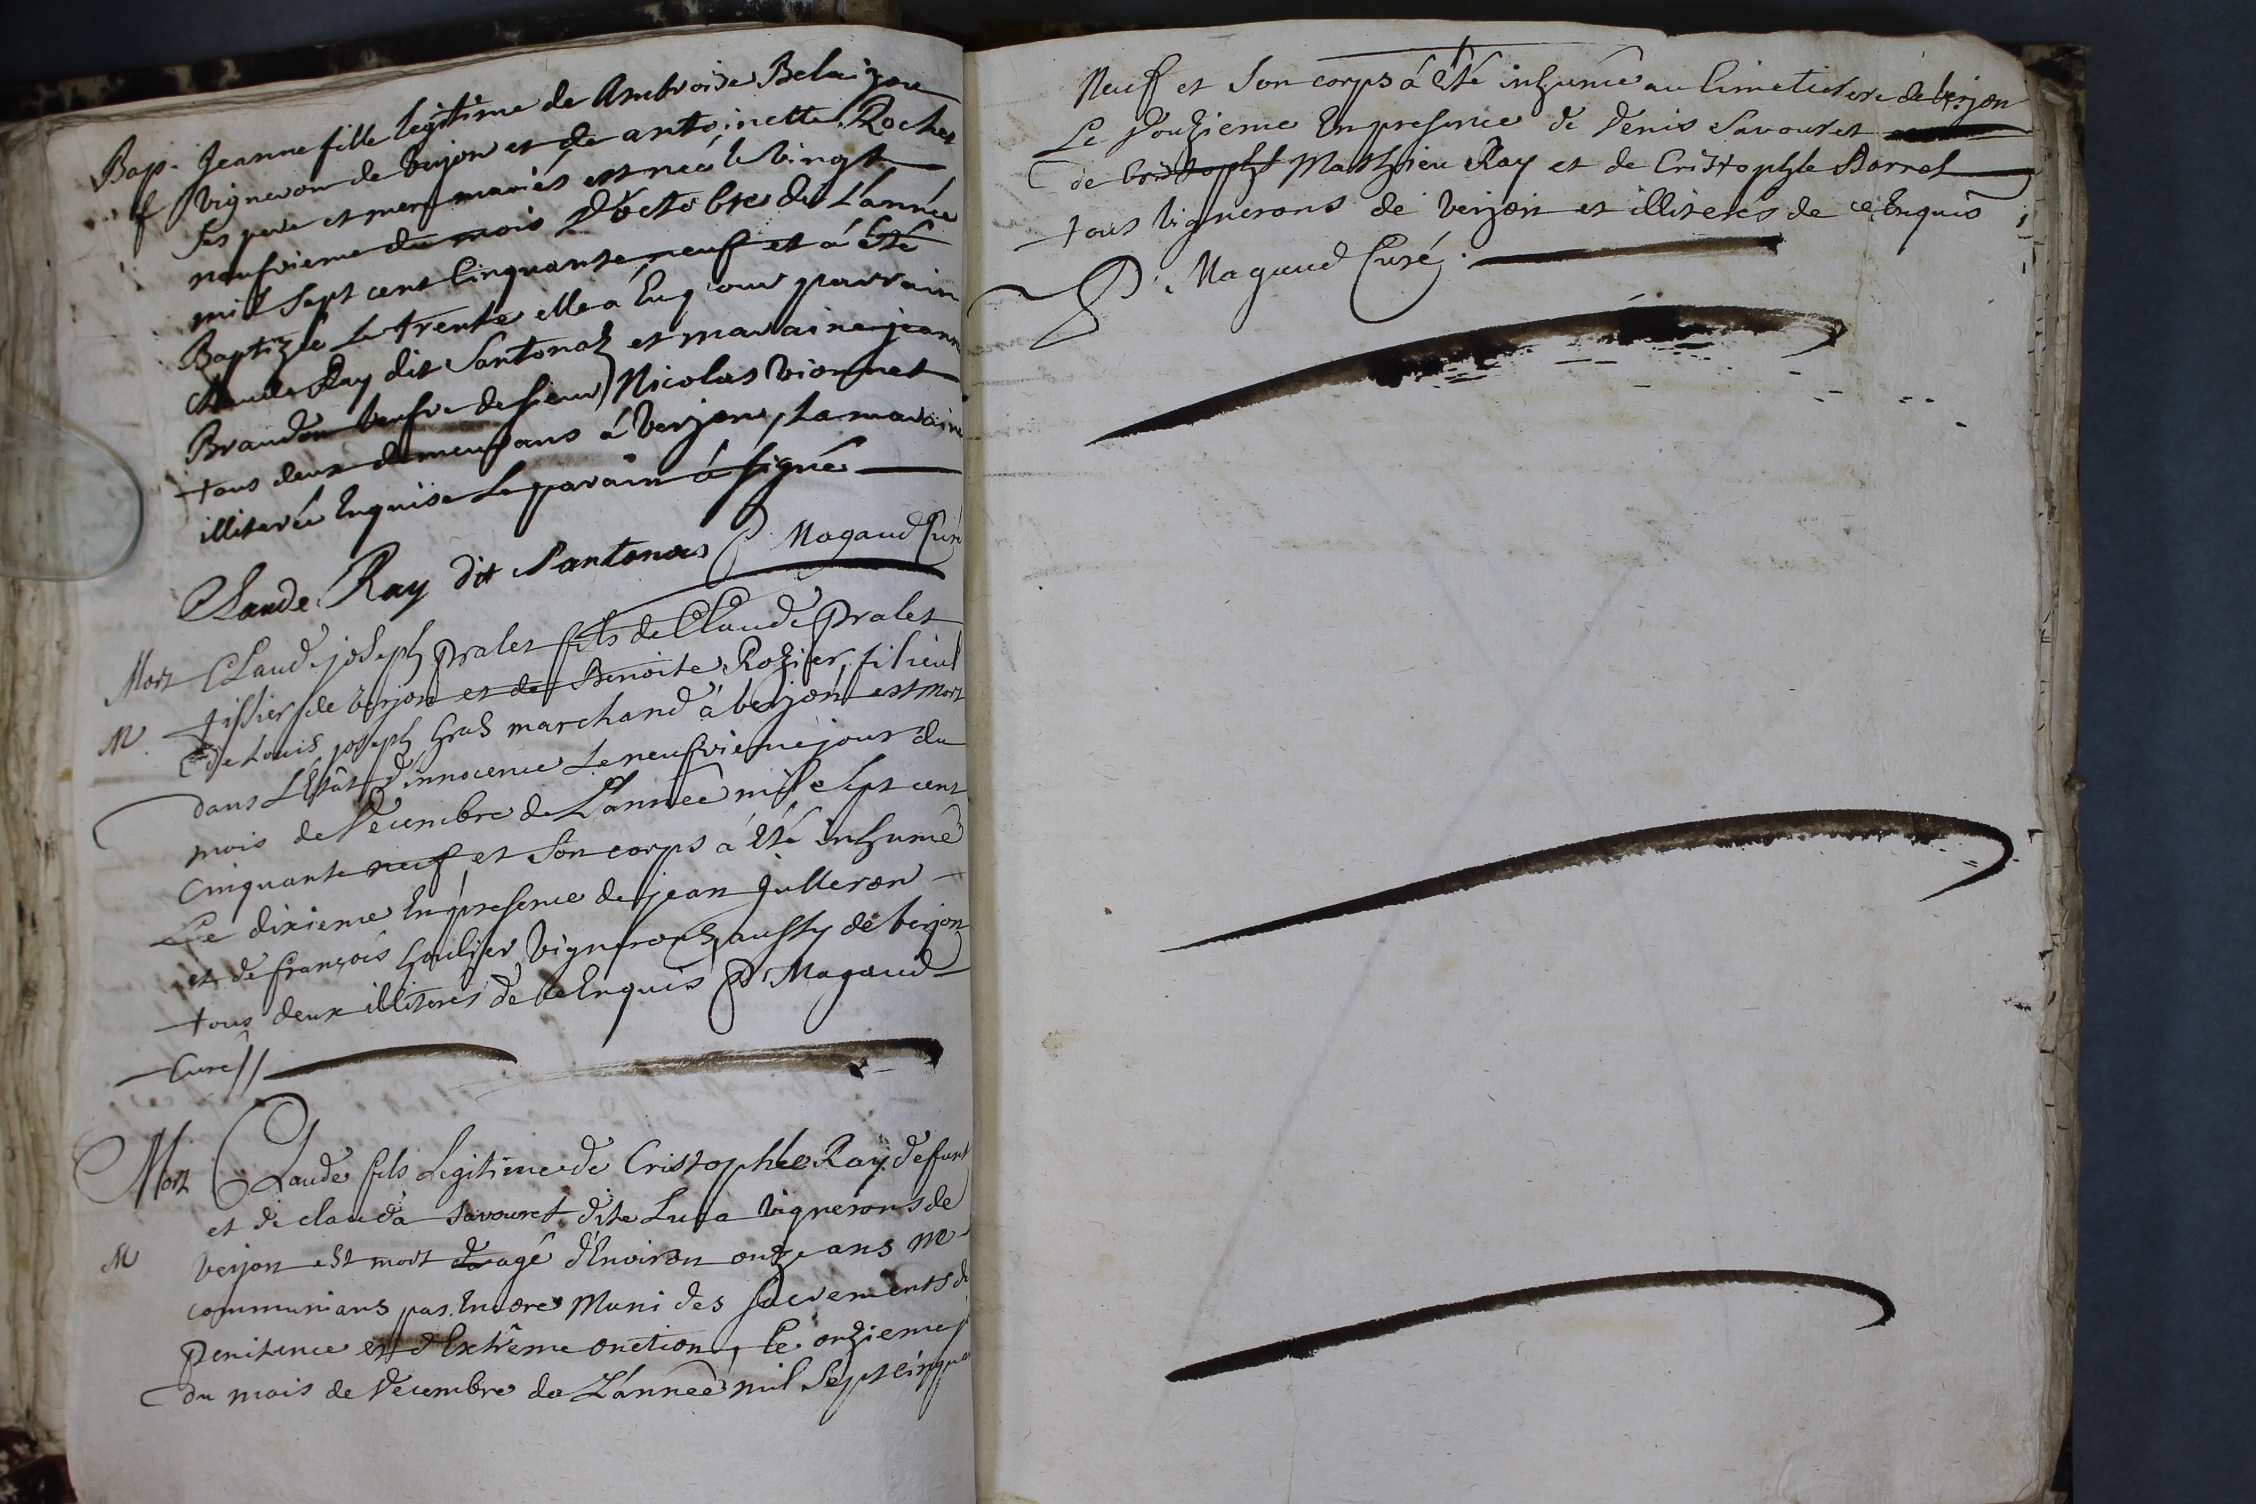 Bap. Jeanne fille legitime de Ambroise Belaizon
f vigneron de verjon et de antoinette Rochet
Ses pere et mere mariés est née le vingt
neufvieme du mois d'octobre de L'année
mil Sept cent Cinquante neuf et á été
Baptizée Le trente elle á Eu pour parrain
Claude Ray dit Santonas et maraine jeanne
Brandon veufve de sieur Nicolas vionnet
tous deux demeurans á verjon, La maraine
illiterée Enquise Le parain á signé
Claude Ray dit Santonas P. Magaud Curé
Mort Claude joseph Pralet fils de Claude Pralet
tissier de verjon et de Benoite Rozier, filieul
M. de Louis joseph gras marchand á verjon est mort
dans L'Etât d'innocence Le neufvieme jour du
mois de Decembre de L'année mil Sept cent
Cinquante neuf, et Son corps á été inhumé
Le dixieme En presence de jean Julleron
et de françois goulier vignerons aussy de verjon
tous deux illiterés de ce Enquis P. Magaud
Curé //
Mort Claude fils Legitime de Cristophle Ray defunt
et de clauda Savouret dite Luca vignerons de
M verjon est mort agé d'Environ onze ans ne
communians pas Encore Muni des sacrements de
Penitence et d'Extrême onction, Le onzieme
du mois de Decembre de L'année mil Sept cinquante
Neuf et Son corps á été inhumé au Cimetiere de verjon
Le Douzieme En presence de Denis Savouret
de Cristophle Matthieu Ray et de Cristophle Borrel
tous vignerons de verjon et illiterés de ce Enquis
P. Magaud Curé.